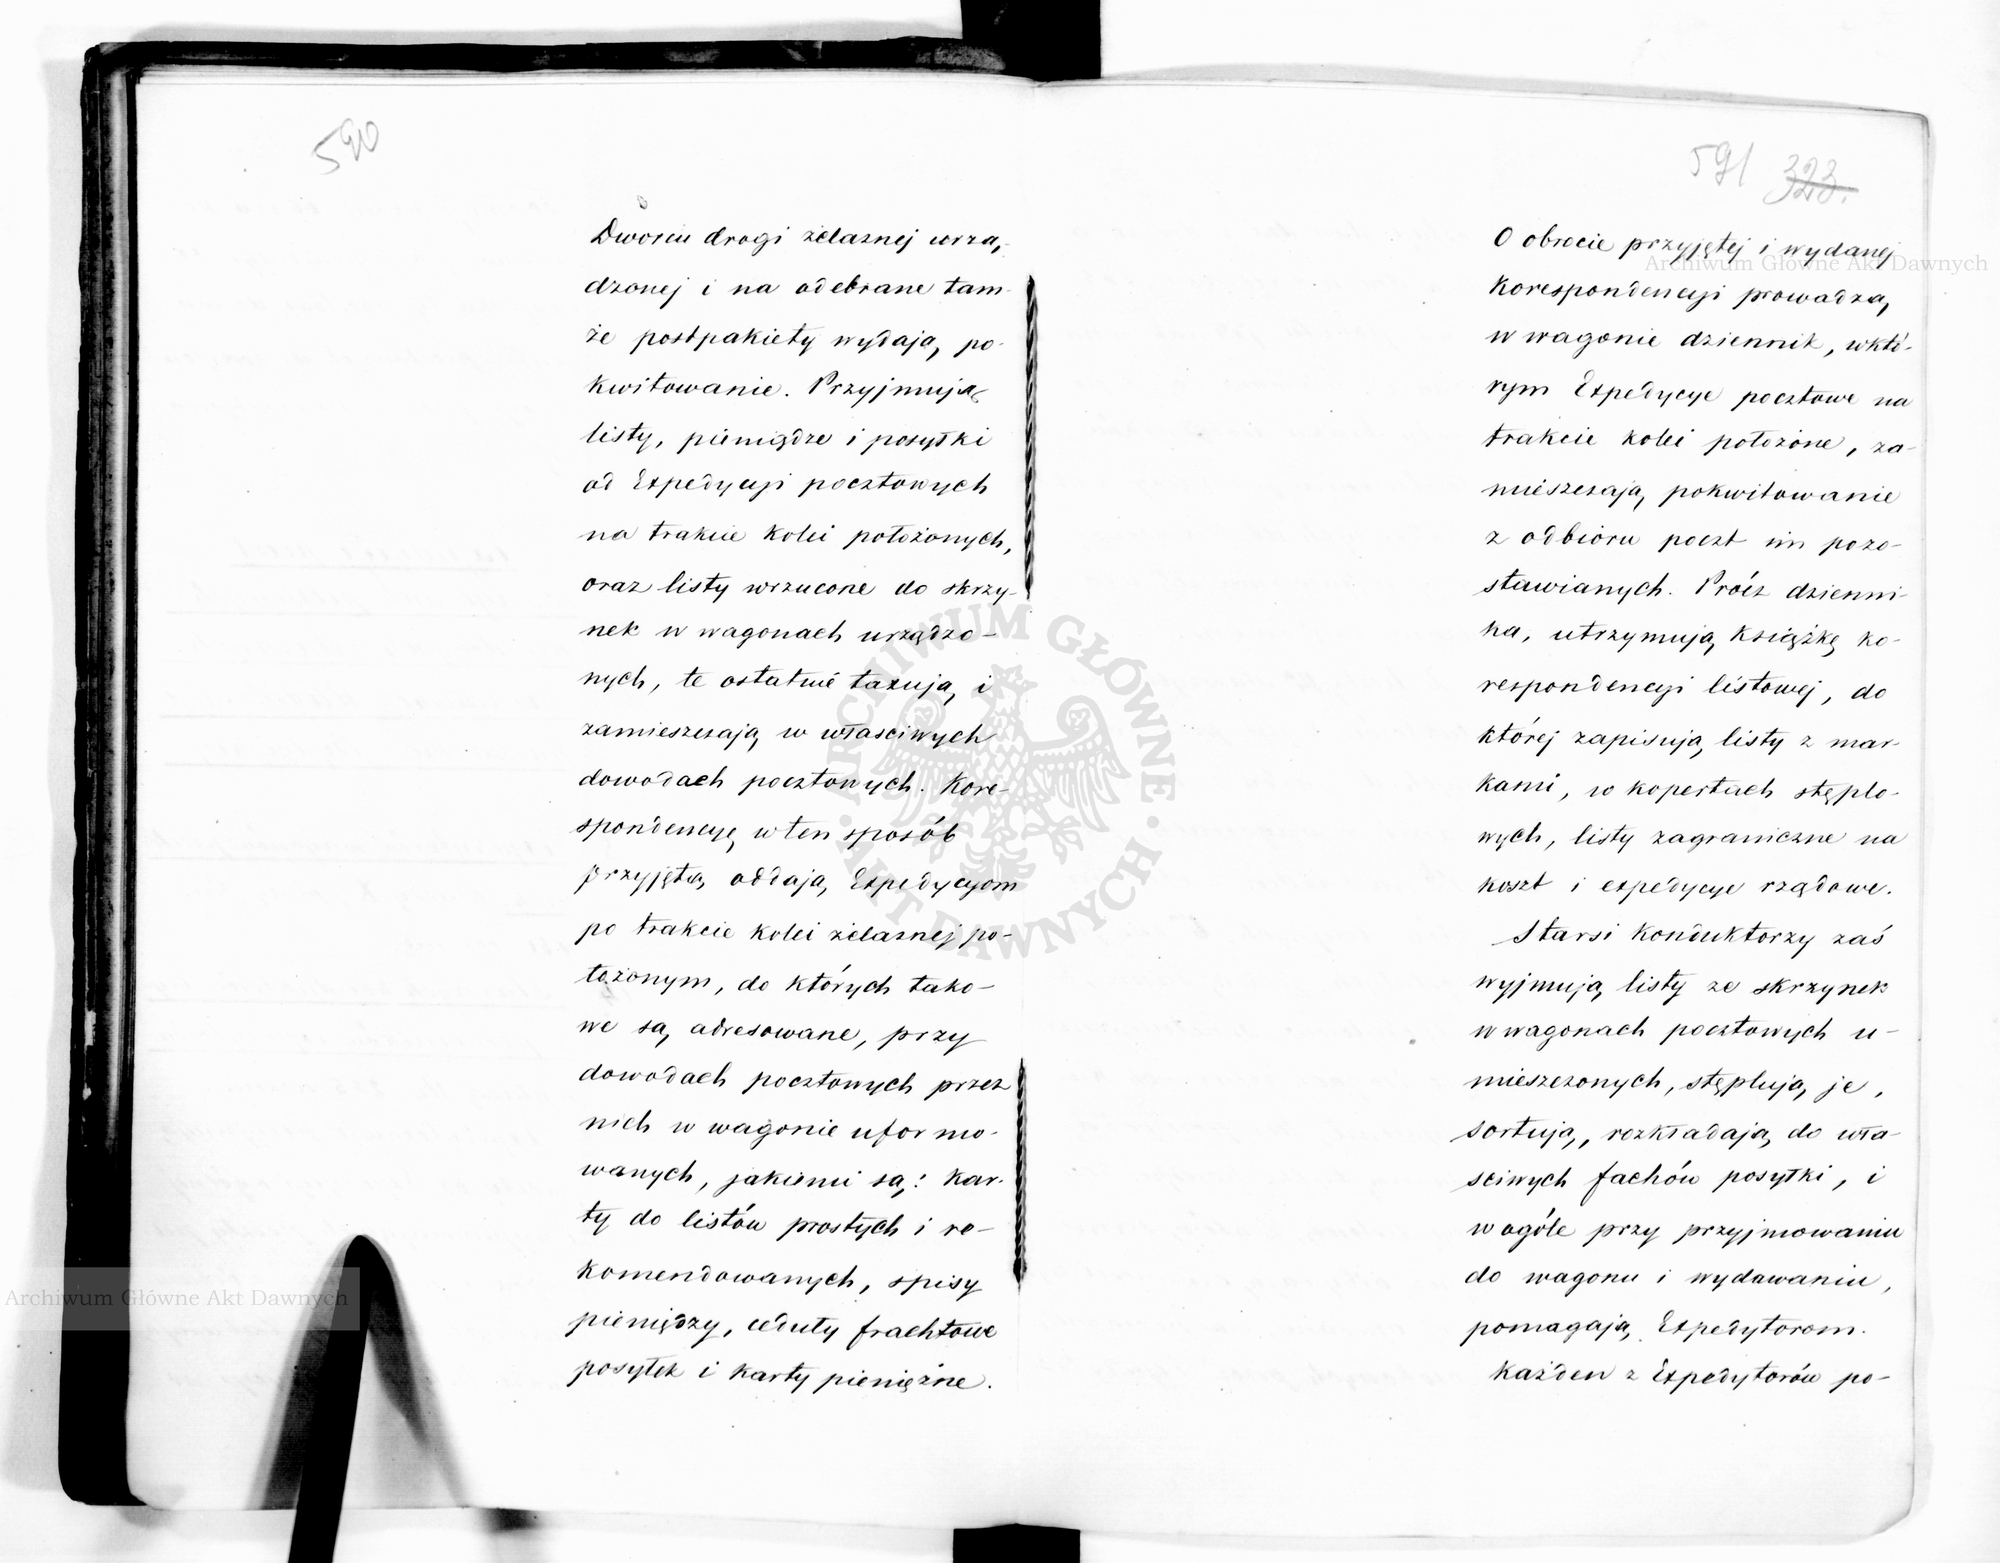 590
Dworcu drogi żelaznej urzą-
dzonej i na odebrane tam-
że postpakiety wydają po-
kwitowanie. Przyjmują
listy, pieniądze i posyłki
od Expedycyi pocztowych
na trakcie kolei położonych,
oraz listy wrzucone do skrzy-
nek w wagonach urządzo-
nych, te ostatnie taxują i
zamieszczają w własciwych
dowodach pocztowych. Kore-
spondencyę w ten sposób
przyjętą oddają Expedycyom
po trakcie kolei żelaznej po-
łożonym, do których tako-
we są adresowane, przy
dowodach pocztowych przez
nich w wagonie uformo-
wanych, jakiemi są: Kar-
ty do listów prostych i re-
komendowanych, spisy
pieniędzy, ceduły frachtowe
posyłek i karty pieniężne.
591 323.
O obrocie przyjętej i wydanej
Korespondencyi prowadzą
w wagonie dziennik, w któ-
rym Expedycye pocztowe na
trakcie kolei położone, za-
mieszczają pokwitowanie
z odbioru poczt im pozo-
stawianych. Prócz dzienni-
ka, utrzymują Książkę ko-
respondencyi listowej, do
której zapisują listy z mar-
kami, w kopertach stęplo-
wych, listy zagraniczne na
koszt i expedycye rządowe.
Starsi Konduktorzy zaś
wyjmują listy ze skrzynek
w wagonach pocztowych u-
mieszczonych, stęplują je,
sortują, rozkładają do wła-
sciwych fachów posyłki, i
w ogóle przy przyjmowaniu
do wagonu i wydawaniu,
pomagają Expedytorom.
Każden z Expedytorów po-
Archiwum Główne Akt Dawnych
Archiwum Główne Akt Dawnych
ARCHIWUM GŁÓWNE · AKT DAWNYCH ·